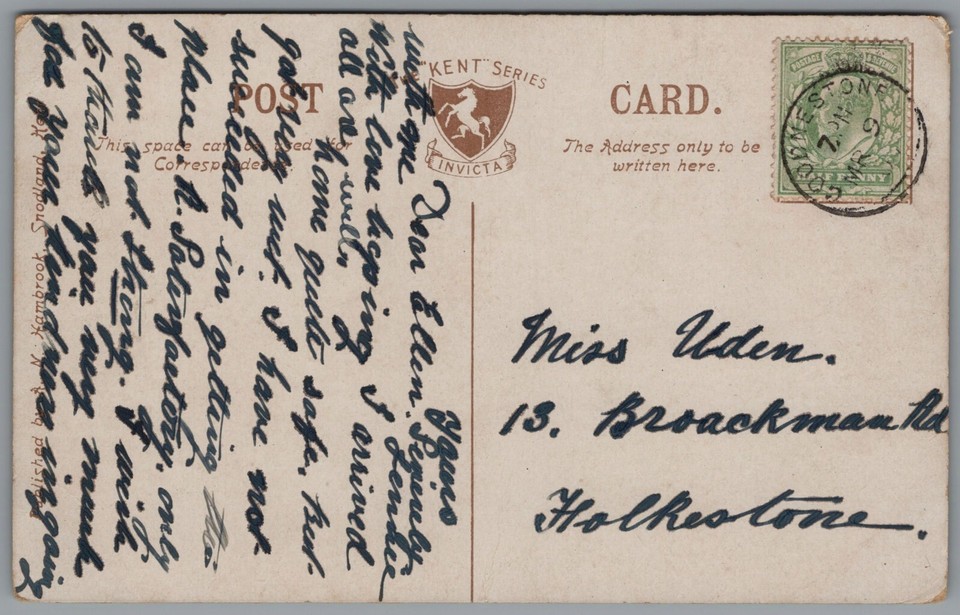 THE "KENT" SERIES
INVICTA
POST CARD.
This space can be used for
Correspondence.
The Address only to be
written here.
HALFPENNY
MR 9
Miss Uden.
13. Broackman Rd
Folkestone.
Dear Ellen.
I arrived
home quite safe. but
I have not
succeeded in getting this
place A. Satisfactory. only
I am not strong. I wish
to thank you very much
for your kindness in going
with me
with love hoping
all are well,
Yours
Sincerely
Published by A. N. Hambrook, Snodland, Kent